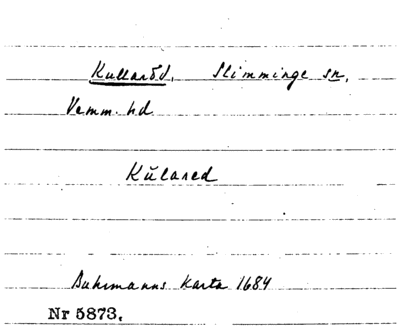 Kullaröd, Slimminge sn,
Vemm. hd
Kŭlared
Buhrmanns Karta 1684
Nr 5873.